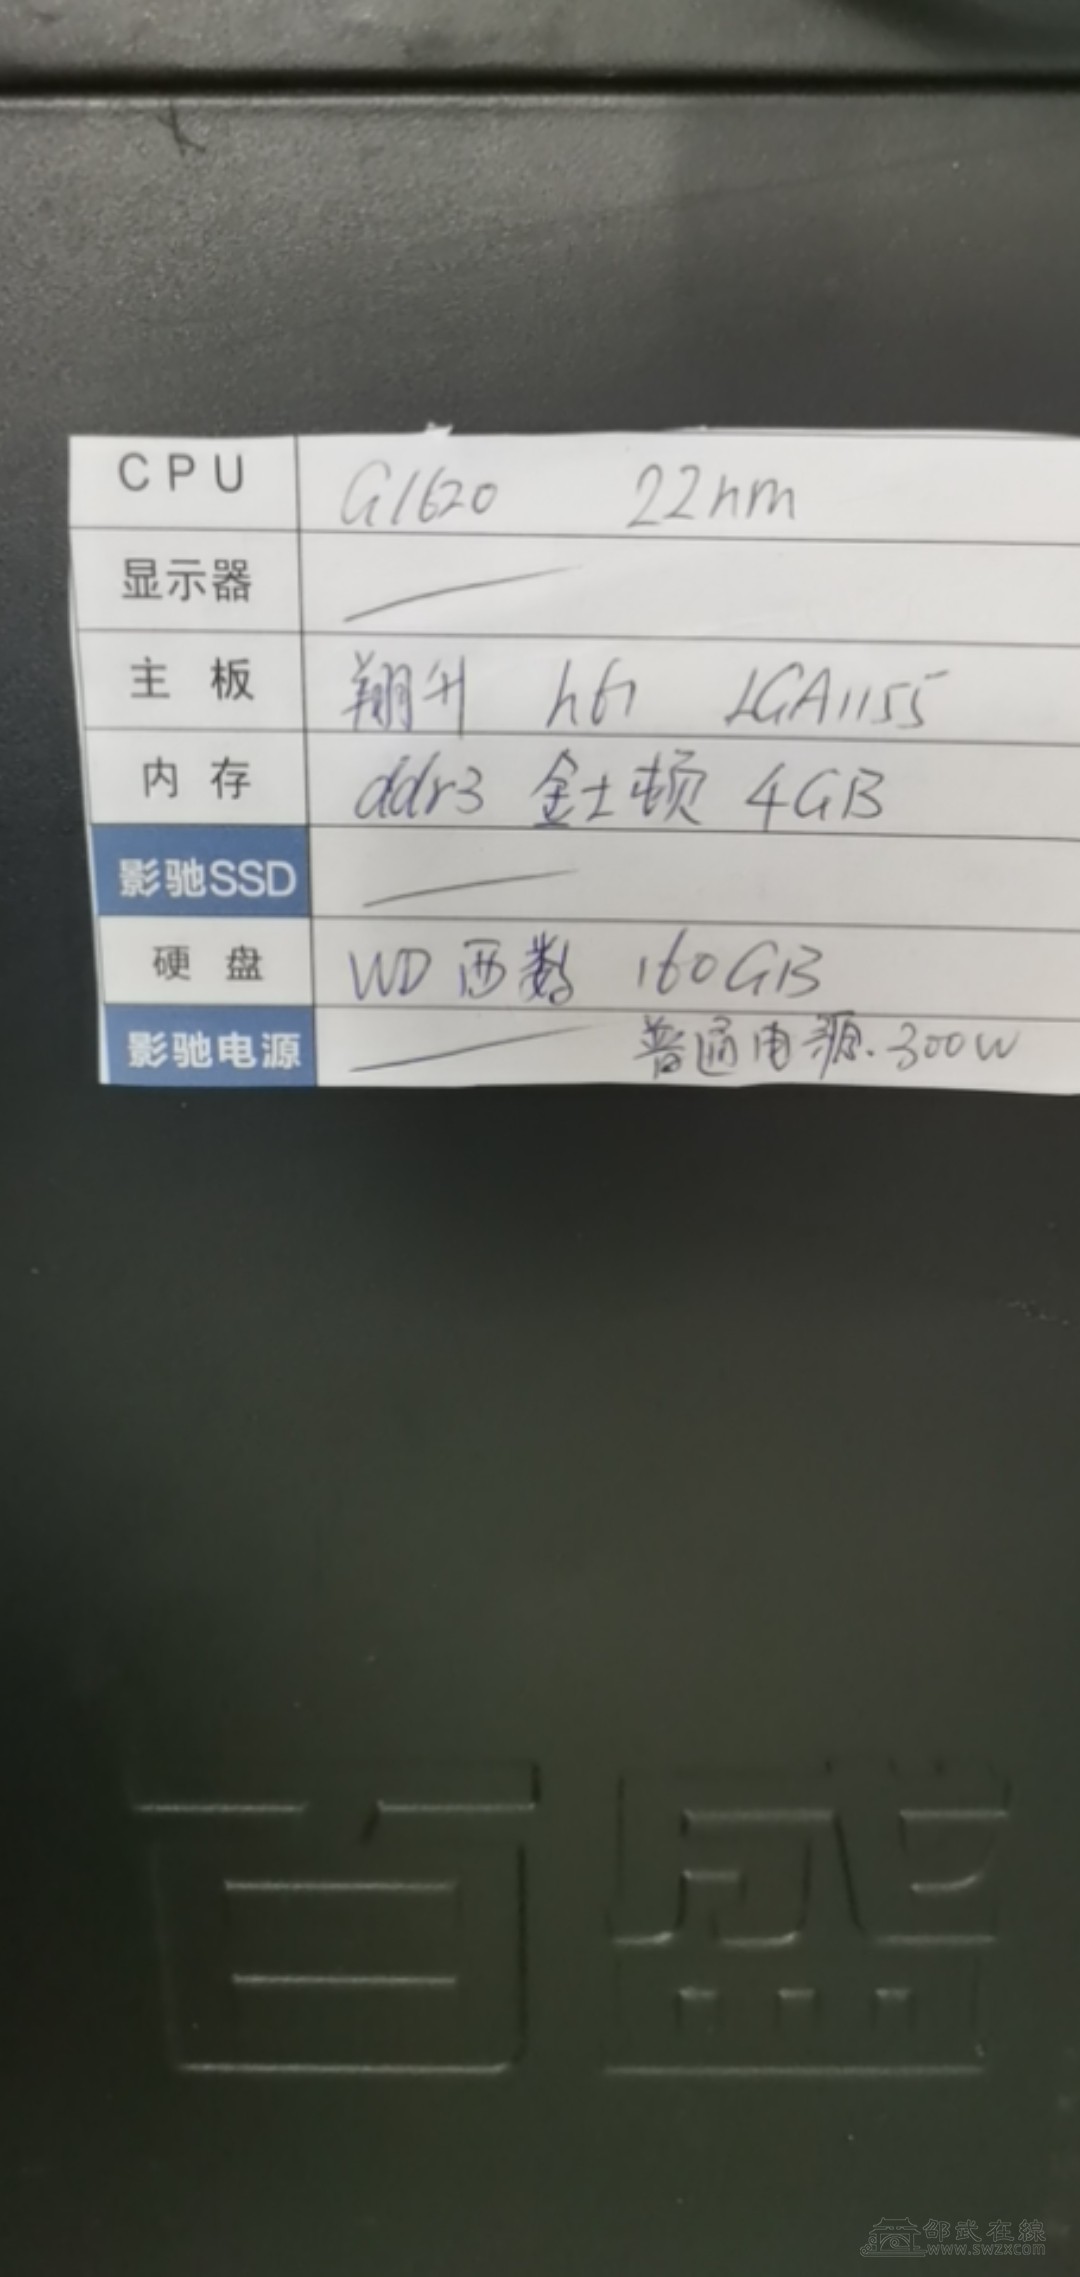 CPU G1620 22nm
显示器
主板 翔升 h61 LGA1155
内存 ddr3 金士顿 4GB
影驰SSD
硬盘 WD 西数 160GB
影驰电源 普通电源.300W
百盛
邵武在線
www.swzx.com